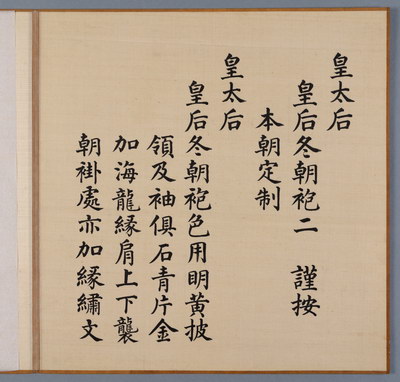 皇太后
皇后冬朝袍二　謹按
本朝定制
皇太后
皇后冬朝袍色用明黃披
領及袖俱石青片金
加海龍緣肩上下襲
朝褂處亦加緣繡文